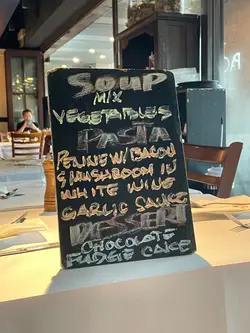 SOUP
MIX
VEGETABLES
PASTA
PENNE W/BACON
& MUSHROOM IN
WHITE WINE
GARLIC SAUCE
DESSERT
CHOCOLATE
FUDGE CAKE